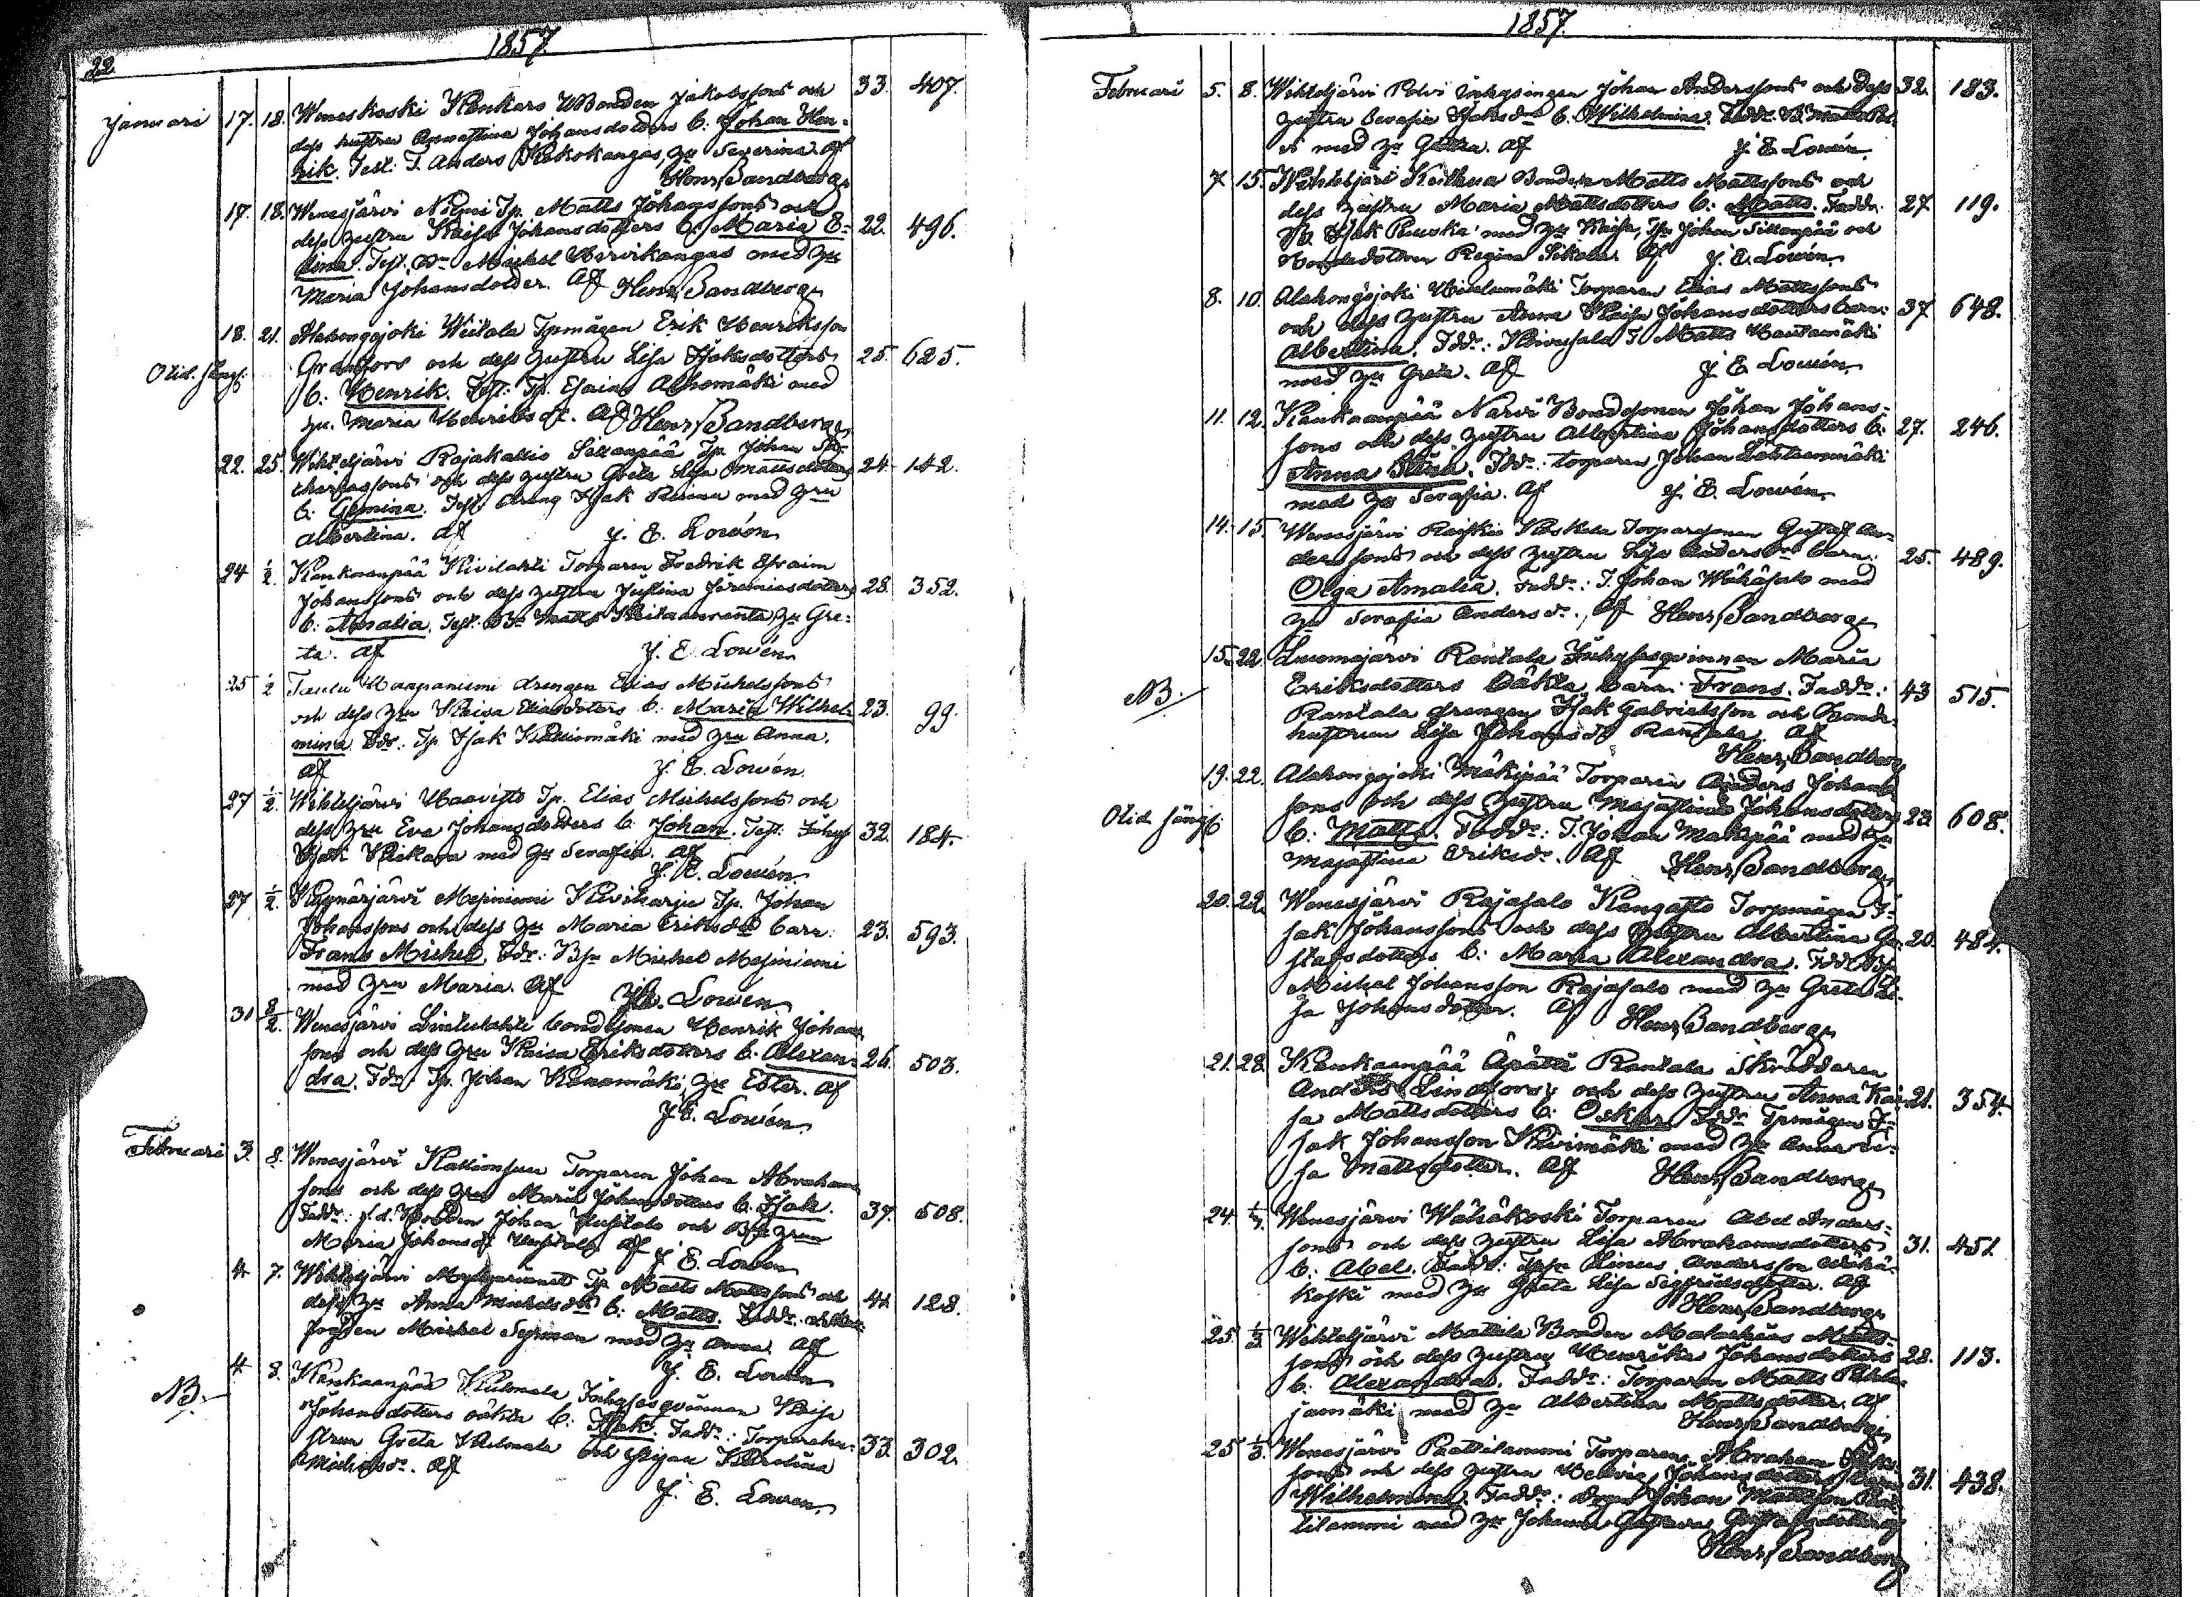 22
1857
Januari 17. 18. Weneskoski Kankars Bonden Jakobssons och 33. 407.
dess hustru Annastina Johansdotters b. Johan Hen-
rik. Test: T. Anders Keskokangas, hu Severina. Af
Henr. Sandberg
17. 18. Wenesjärvi Niemi Tp. Matts Johanssons och
dess hustru Kaisa Johansdotters b. Maria E- 22. 496.
lina. Test. Michel Hirvikangas med hu
Maria Johansdotter. Af Henr. Sandberg
18. 21. Alahongojoki Wiitala Tpmågen Erik Henriksson
Granfors och dess hustru Lisa Isaksdotters 25. 625.
b. Henrik. Test: Tp. Esaias Alhomäki med
hu. Maria Henriksdr. Af Henr. Sandberg
22. 25. Wihteljärvi Rajakallio Sillanpää Tp. Johan
thæussons och dess hustru Greta Lisa Mattsdotters 24. 142.
b. Gemina. Test. dräng Isak Ruina med hru
Albertina. Af J. E. Lowén
24 1/2 Kankaanpää Kivilahti Torparen Fredrik Efraim
Johanssons och dess hustru Justina Jeremiasdotters 28. 352.
b. Amalia. Test. Matts Keitaanranta, hu Gre-
ta. Af J. E. Lowén
25 1/2 Taulu Haapaniemi drengen Elias Michelssons
och dess hru Kaisa Eliasdotters b. Maria Wilhel- 23. 99.
mina. Fdr. Tp Isak Kalliomäki med hru Anna.
Af J. E. Lowén
27 1/2 Wihteljärvi Haavisto Tp. Elias Michelssons och
dess hru Eva Johansdotters b. Johan. Test. Inhys 32. 184.
Isak med hu Serafia. Af
J. E. Lowén
27 1/2 Kynäsjärvi Mejiniemi Kiviharju Tp. Johan
Johanssons och dess hu Maria Eriksdrs barn: 23. 593.
Frans Michel. Fdr. Michel Mejiniemi
med hru Maria. Af J. E. Lowén
31 8/2 Wenesjärvi Lintulahti bondsonen Henrik Johans
sons och dess hru Kaisa Eriksdotters b. Alexan- 26. 503.
dra. Fdr. Tp. Johan Kenomäki, hu Ester. Af
J. E. Lowén
Februari 3. 8. Wenesjärvi Kallionsuu Torparen Johan Abrahams
sons och dess hru Maria Johansdotters b. Isak. 37. 508.
Faddr: f. d. Bonden Johan Uusitalo och hrun
Maria Johansdr Uusitalo. Af J. E. Lowén
4 7. Wihteljärvi Tp Matts Mattssons och
dess hu Anna Michelsdrs b. Matts. Faddr. 41 128.
fogden Michel Syrman med hu Anna. Af
J. E. Lowén
NB. 4 8. Kankaanpää Kulmala Inhysesqvinnan Kaisa
Johansdotters oäkta b. Isak. Faddr.: Torparehu-
strun Greta Kulmala och pigan Karolina 33. 302.
Michelsdr. Af
J. E. Lowén
1857.
Februari 5. 8. Wihteljärvi Polvi Inhysingen Johan Anderssons och dess 32. 183.
hustru Serafia Isaksdrs b. Wilhelmina. Faddr. B. Matts Pol-
vi med hu Greta. Af J. E. Lowén
7 15. Wihteljärvi Keitkua Bonden Matts Mattssons och
dess hustru Maria Mattsdotters b. Matts. Faddr. 27 119.
B. Isak Ruuska med hu Kaisa, Tps Johan Sillanpää och
Bondedottren Regina Sikala. Af J. E. Lowén
8. 10. Alahongojoki Torparen Elias Mattssons
och dess hustru Anna Kaisa Johansdotters barn: 37 648.
Albertina. Fddr: Koivusalo T. Matts Hautamäki
med hu Greta. Af J. E. Lowén
11. 12. Kankaanpää Narvi Bondsonen Johan Johans-
sons och dess hustru Albertina Johansdotters b. 27. 246.
Anna. Fddr.: torparen Johan
med hu Serafia. Af J. E. Lowén
14. 15. Wenesjärvi Koskela Torparsonen Gustaf An-
derssons och dess hustru Lisa Andersdrs barn: 25. 489.
Olga Amalia. Faddr.: T. Johan Wähäsalo med
hu Serafia Andersdr., Af Henr. Sandberg
NB. 15. 22. Luomajärvi Rantala Inhysesqvinnan Maria
Eriksdotters oäkta barn: Frans. Faddr.: 43 515.
Rantala drengen Isak Gabrielsson och Bonde-
hustrun Lisa Johansdr Rantala. Af
Henr. Sandberg
19. 22. Alahongojoki Mäkipää Torparen Anders Johans
Olid säng. sons och dess hustru Majastina Johansdotters 23 608.
b. Matts. Faddr.: T. Johan Mäkipää med hu
Majastina Eriksdr. Af Henr. Sandberg
20. 22. Wenesjärvi Rajasalo Kangasto Torpmågen I-
sak Johanssons och dess hustru Albertina Gu- 20. 484.
stafsdotters b. Maria Alexandra. Fddr
Michel Johansson Rajasalo med hu Greta Li-
sa Johansdotter. Af Henr. Sandberg
21. 28. Kankaanpää Äpätti Rantala Skräddaren
Anders Lindfors och dess hustru Anna Kai- 21. 354.
sa Mattsdotters b. Oskar. Fddr. Tpmågen I-
sak Johansson Kivimäki med hu Anna Li-
sa Mattsdotter. Af Henr. Sandberg
24. 1/3. Wenesjärvi Wähäkoski Torparen Abel Anders-
sons och dess hustru Lisa Abrahamsdotters 31. 451
b. Abel. Faddr.: Linus Andersson Wähä-
koski med hu Greta Lisa Segfridsdotter. Af
Henr. Sandberg
25. 1/3 Wihteljärvi Mattila Bonden Malachias Matts-
sons och dess hustru Henrika Johansdotters 28. 113.
b. Alexandra. Faddr.: Torparen Matts
jamäki med hu Albertina Mattsdotter. Af
Henr. Sandberg
25 1/3. Wenesjärvi Paattilammi Torparen Abraham Isaks-
sons och dess hustru Helvig Johansdotters barn 31. 438.
Wilhelmina. Faddr: Johan Mattsson Paat-
tilammi med hu Johanna Gustava Gustafsdotter. Af
Henr. Sandberg